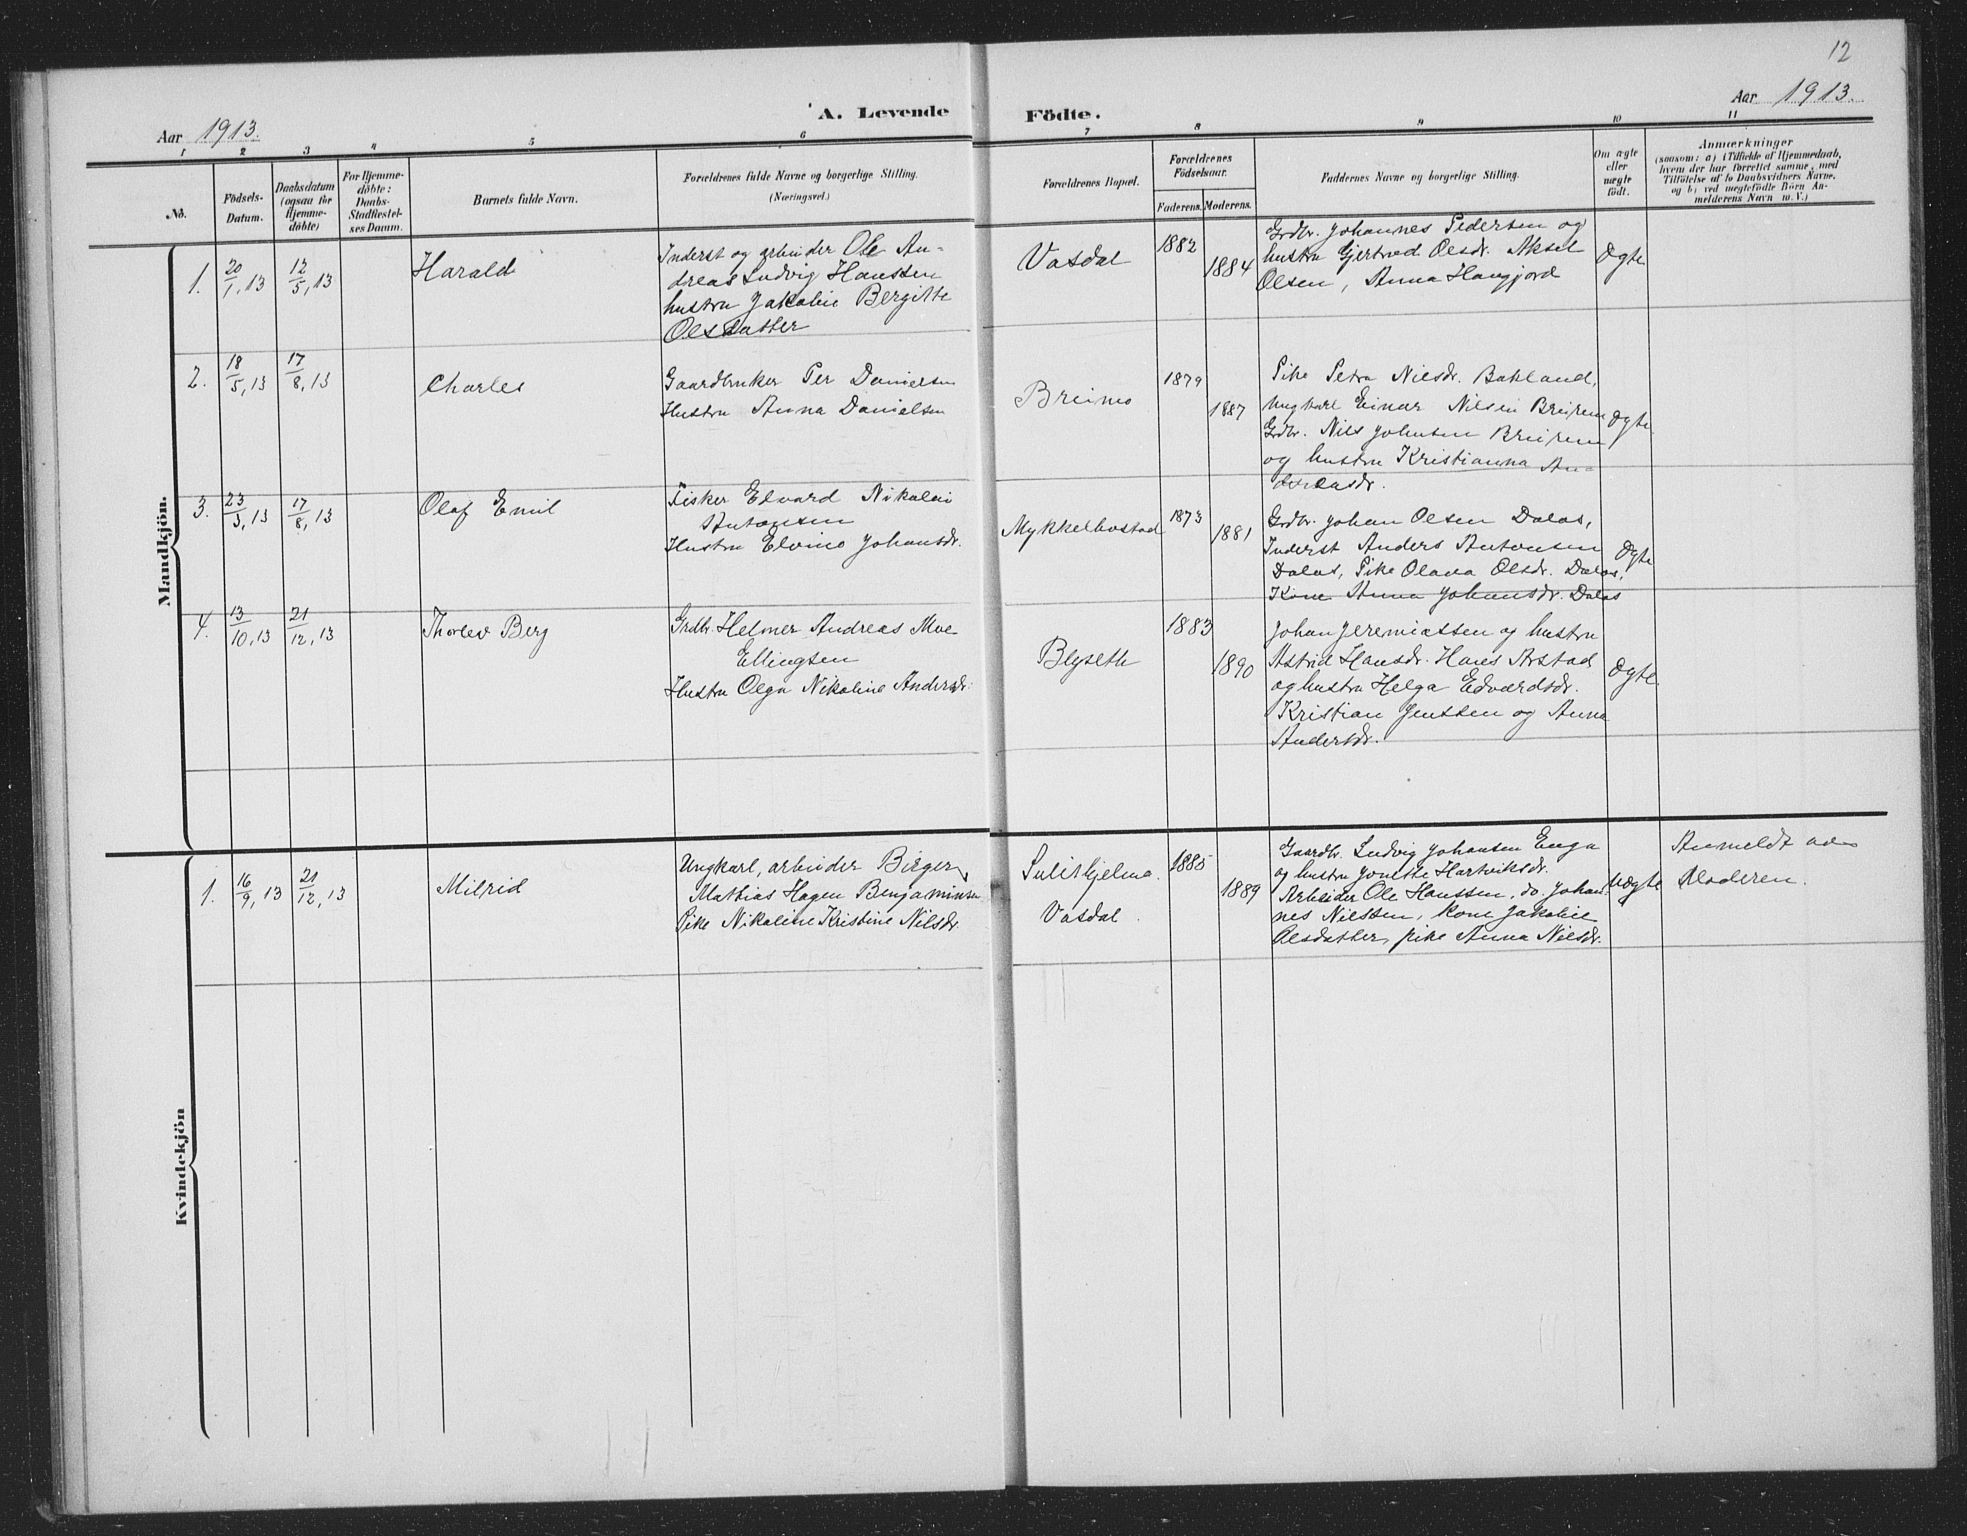 12
Aar 1913.
A. Levende
Födte.
Aar 1913.
1
2
3
4
5
6
7
8
9
10
11
No.
Födsels-
Datum.
Daabsdatum
(ogsaa for
Hjemme-
döbte)
For Hjemme-
döbte:
Daabs-
Stadfæstel-
ses Datum.
Barnets fulde Navn.
Forældrenes fulde Navne og borgerlige Stilling.
(Næringsvei.)
Forældrenes Bopæl.
Forældrenes
Födselsaar.
Faderens.
Moderens.
Faddernes Navne og borgerlige Stilling.
Om ægte
eller
uægte
födt.
Anmærkninger
(saasom: a) i Tilfælde af Hjemmedaab,
hvem der har forrettet samme, med
Tilföielse af to Daabsvidners Navne,
og b) ved uegtefödte Börn An-
melderens Navn m. V.)
Mandkjön.
1.
20/1, 13
12/5, 13
Harald
Inderst og arbeider Ole An-
dreas Ludvig Hanssen
hustru Jakobie Bergitte
Olsdatter
Vasdal
1882
1884
Grdbr. Johannes Pedersen og
hustru Gjertrud Olsdr. Aksel
Olsen, Anna Haugjord
Ægte
2.
18/5, 13
17/8, 13
Charles
Gaardbruker Per Danielsen
Hustru Anna Danielsen
Breimo
1879
1887
Pike Petra Nilsdr. Bakland,
Ungkarl Einar Nilsen Breirem
Grdbr. Nils Johnsen Breirem
og hustru Kristianna An-
dreasdr.
Ægte
3.
23/3, 13
17/8, 13
Olaf Emil
Fisker Edvard Nikolai
Antonsen
Hustru Elvine Johansdr.
Mykkelbostad
1873
1881
Grdbr. Johan Olsen Dalas,
Inderst Anders Antonsen
Dalas, Pike Olava Olsdr. Dalas,
Kone Anna Johansdr. Dalas
Ægte
4.
13/10, 13
21/12, 13
Thorlev Berg
Grdbr. Helmer Andreas Moe
Ellingsen
Hustru Olga Nikoline Andersdr.
Blyseth
1883
1890
Johan Jeremiassen og hustru
Astrid Hansdr. Hans Arstad
og hustru Helga Edvardsdr.
Kristian Jenssen og Anna
Andersdr.
Ægte.
Kvindekjön
1.
16/9, 13
21/12, 13
Milrid
Ungkarl, arbeider Birger
Mathias Hagen Benjaminsen
Pike Nikoline Kristine Nilsdr.
Sulitjelma.
Vasdal.
1885
1889
Gaardbr. Ludvig Johansen Enga
og hustru Jonette Hartviksdr.
Arbeider Ole Hanssen, do. Johan-
nes Nilssen, kone Jakobie
Olsdatter, pike Anna Nilsdr.
Uægte
Anmeldt av
Moderen.